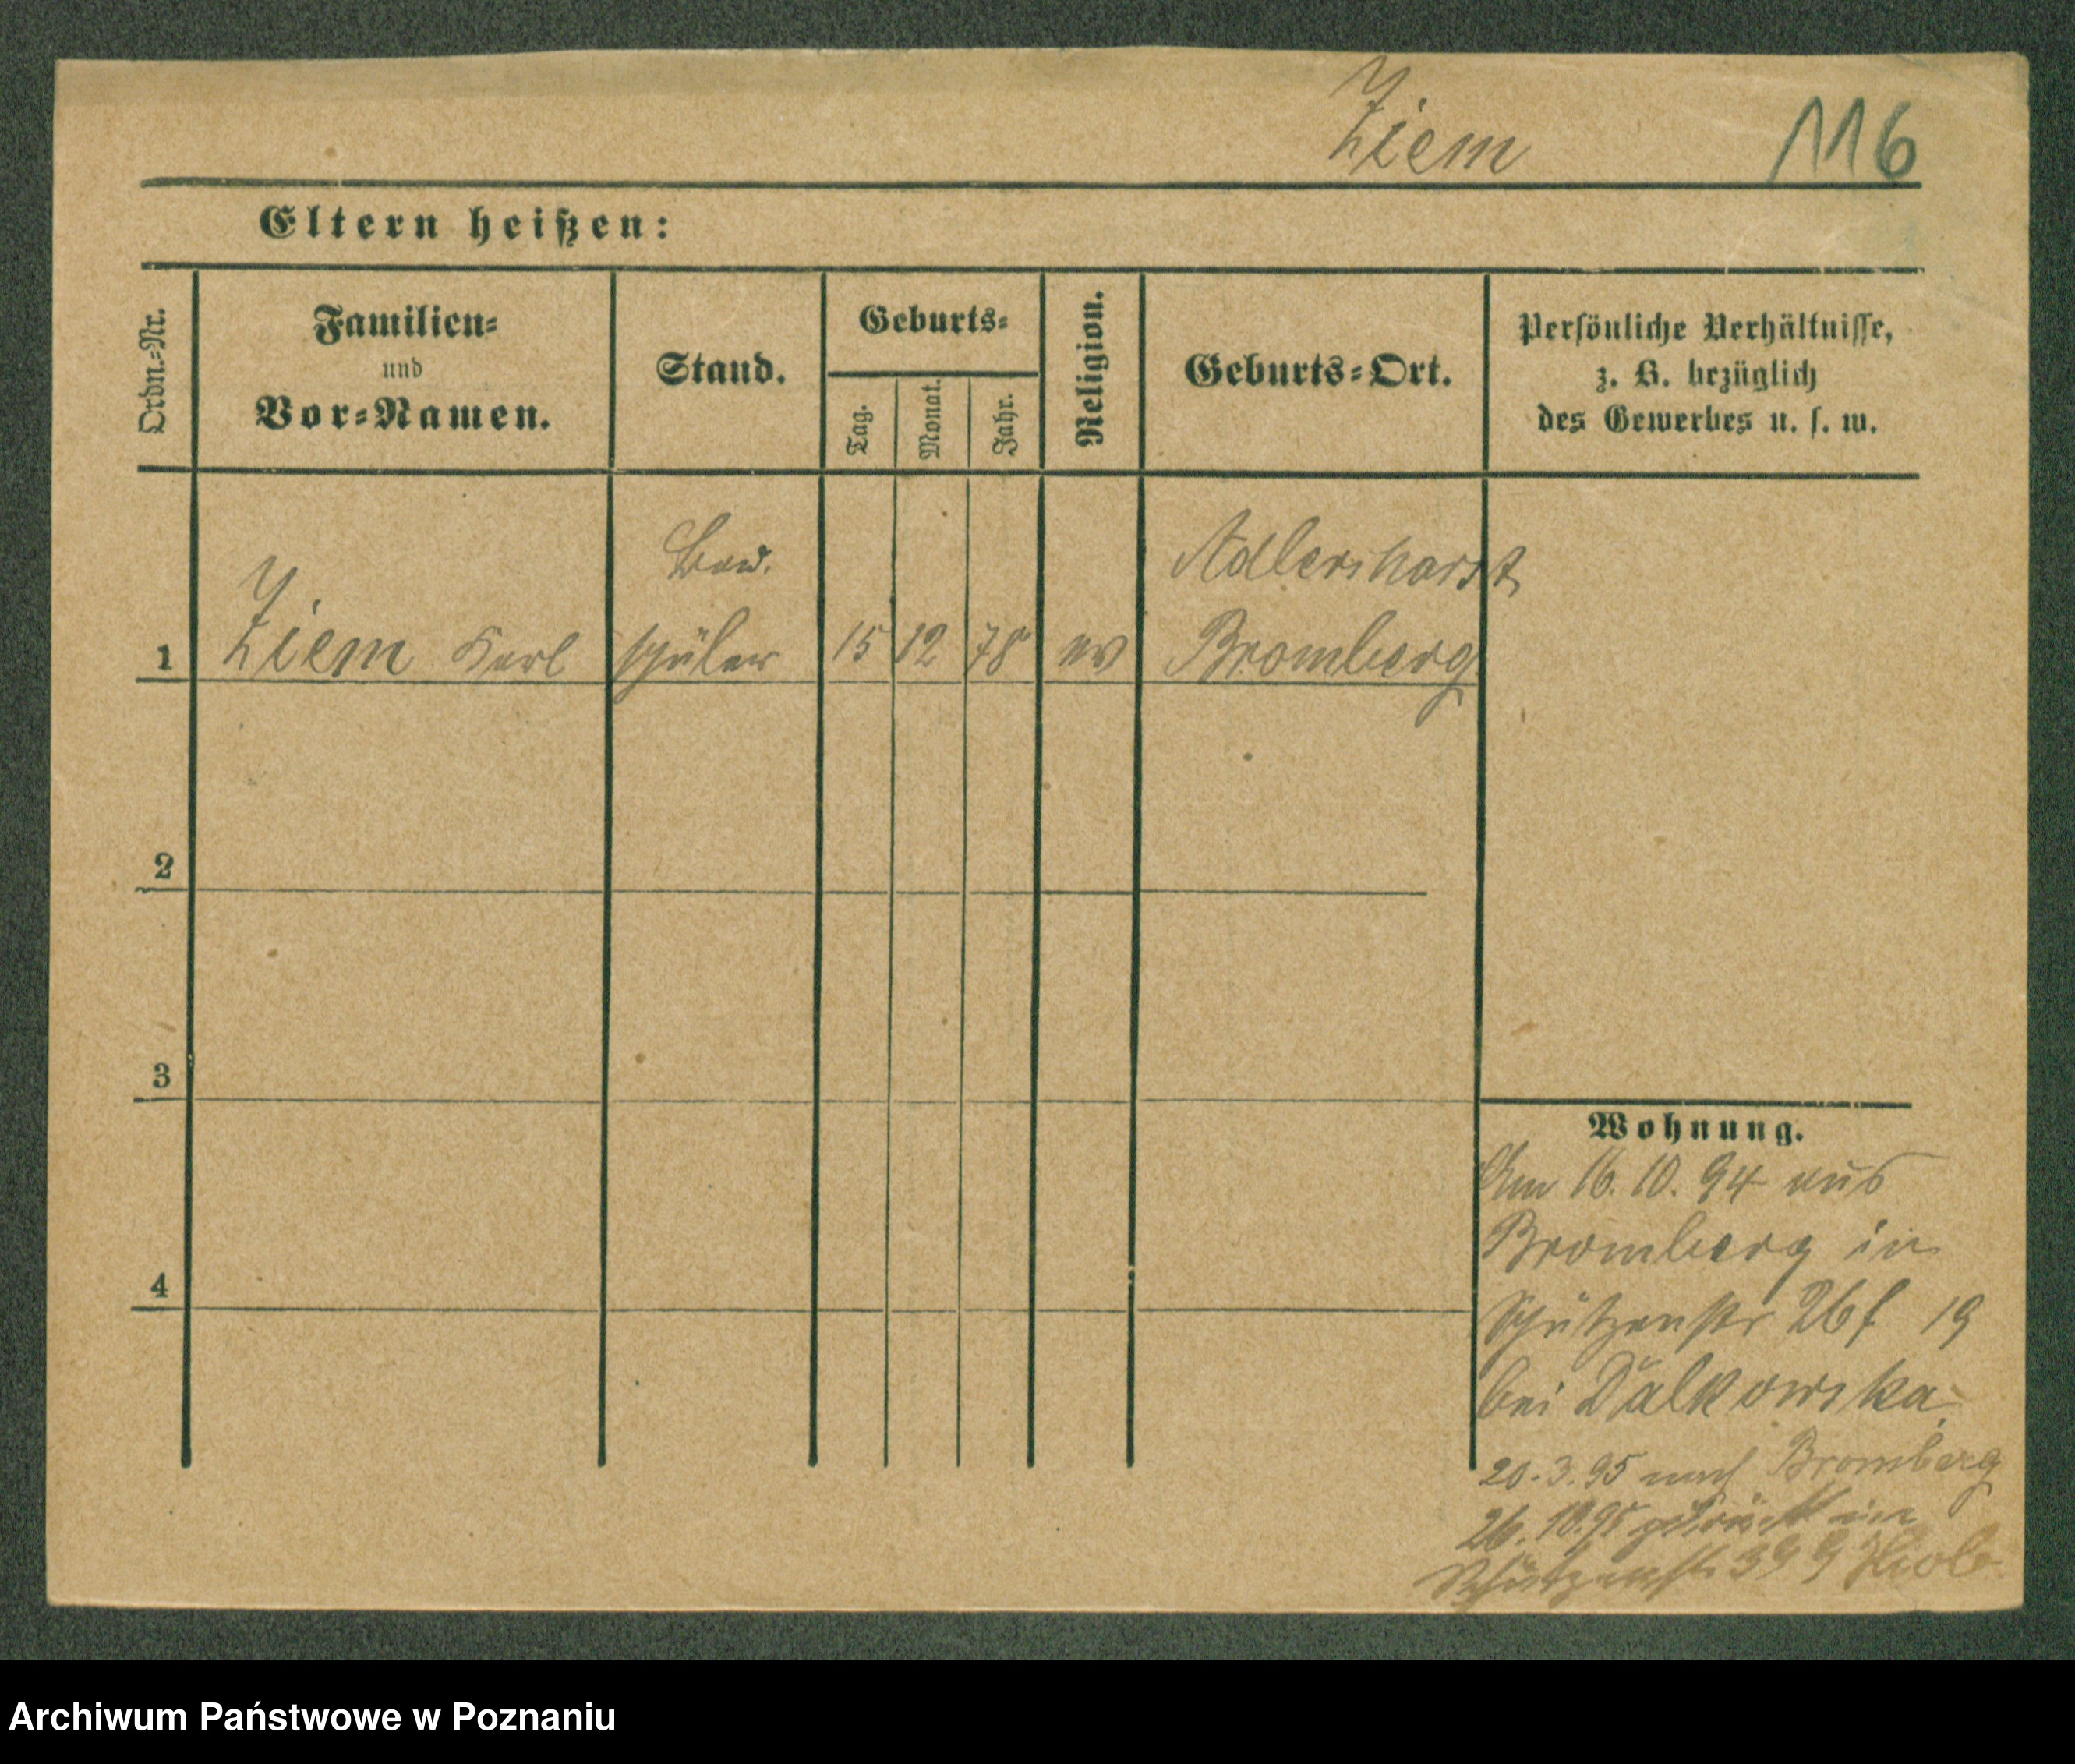 Ziem 116
Eltern heißen:
Ordn.=Nr.
Familien=
und
Vor=Namen.
Stand.
Geburts=
Tag.
Monat.
Jahr.
Religion.
Geburts=Ort.
Persönliche Verhältnisse,
z. B. bezüglich
des Gewerbes u. s. w.
Bau.
Adlershorst
1 Ziem Karl schüler 15 12 78 ev Bromberg
2
3
4
Wohnung.
Am 16. 10. 94 aus
Bromberg in
Schützenstr 26 f 19
bei Dalkowska
20.3.95 nach Bromberg
26.10.95 zurück in
Schützenstr
Archiwum Państwowe w Poznaniu